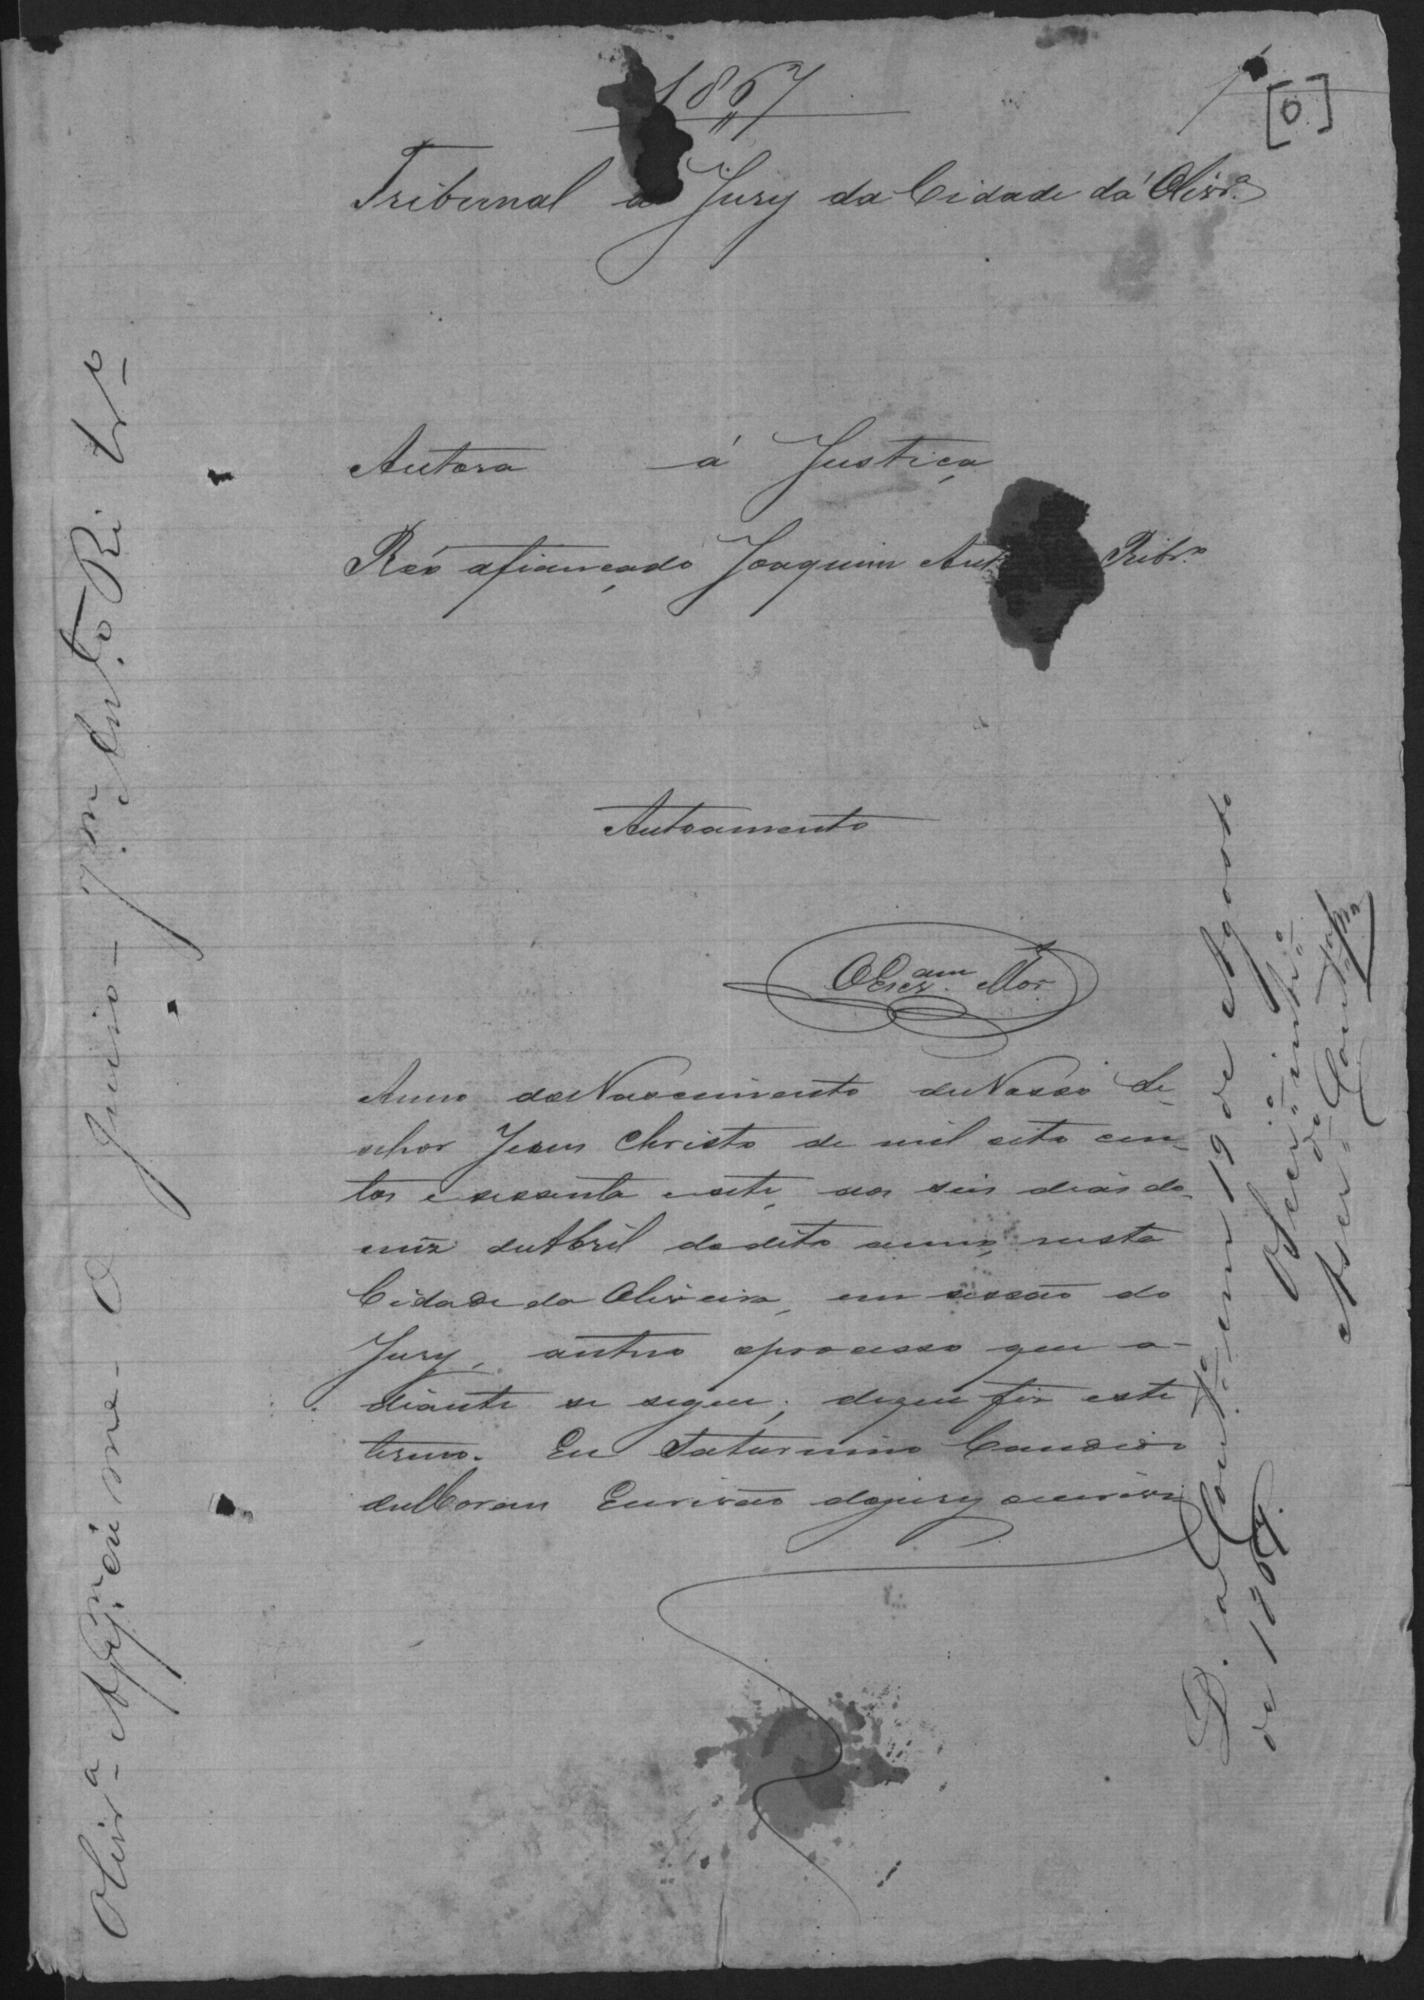 1867
[0]
Tribunal d Jury da Cidade da Olivrª
Autora á Justiça
Réo afiançado Joaquim Ant Ribrº
Autoamento
O Escram Mor.
Anno do Nascimento de Nosso Se-
nhor Jesus Christo de mil oito cen-
tos e sessenta e sete, aos seis dias do
mez de Abril do dito anno, nesta
Cidade da Oliveira, em sessão do
Jury, autuo o processo que a-
diante se segue; do que fiz este
termo. Eu Saturnino Candido
de Moraes Escrivão do jury escrevi
Olivrª Appm O Juizo Jm Anto Ribrº
D. a Contª em 19 de Agosto
de 1867.